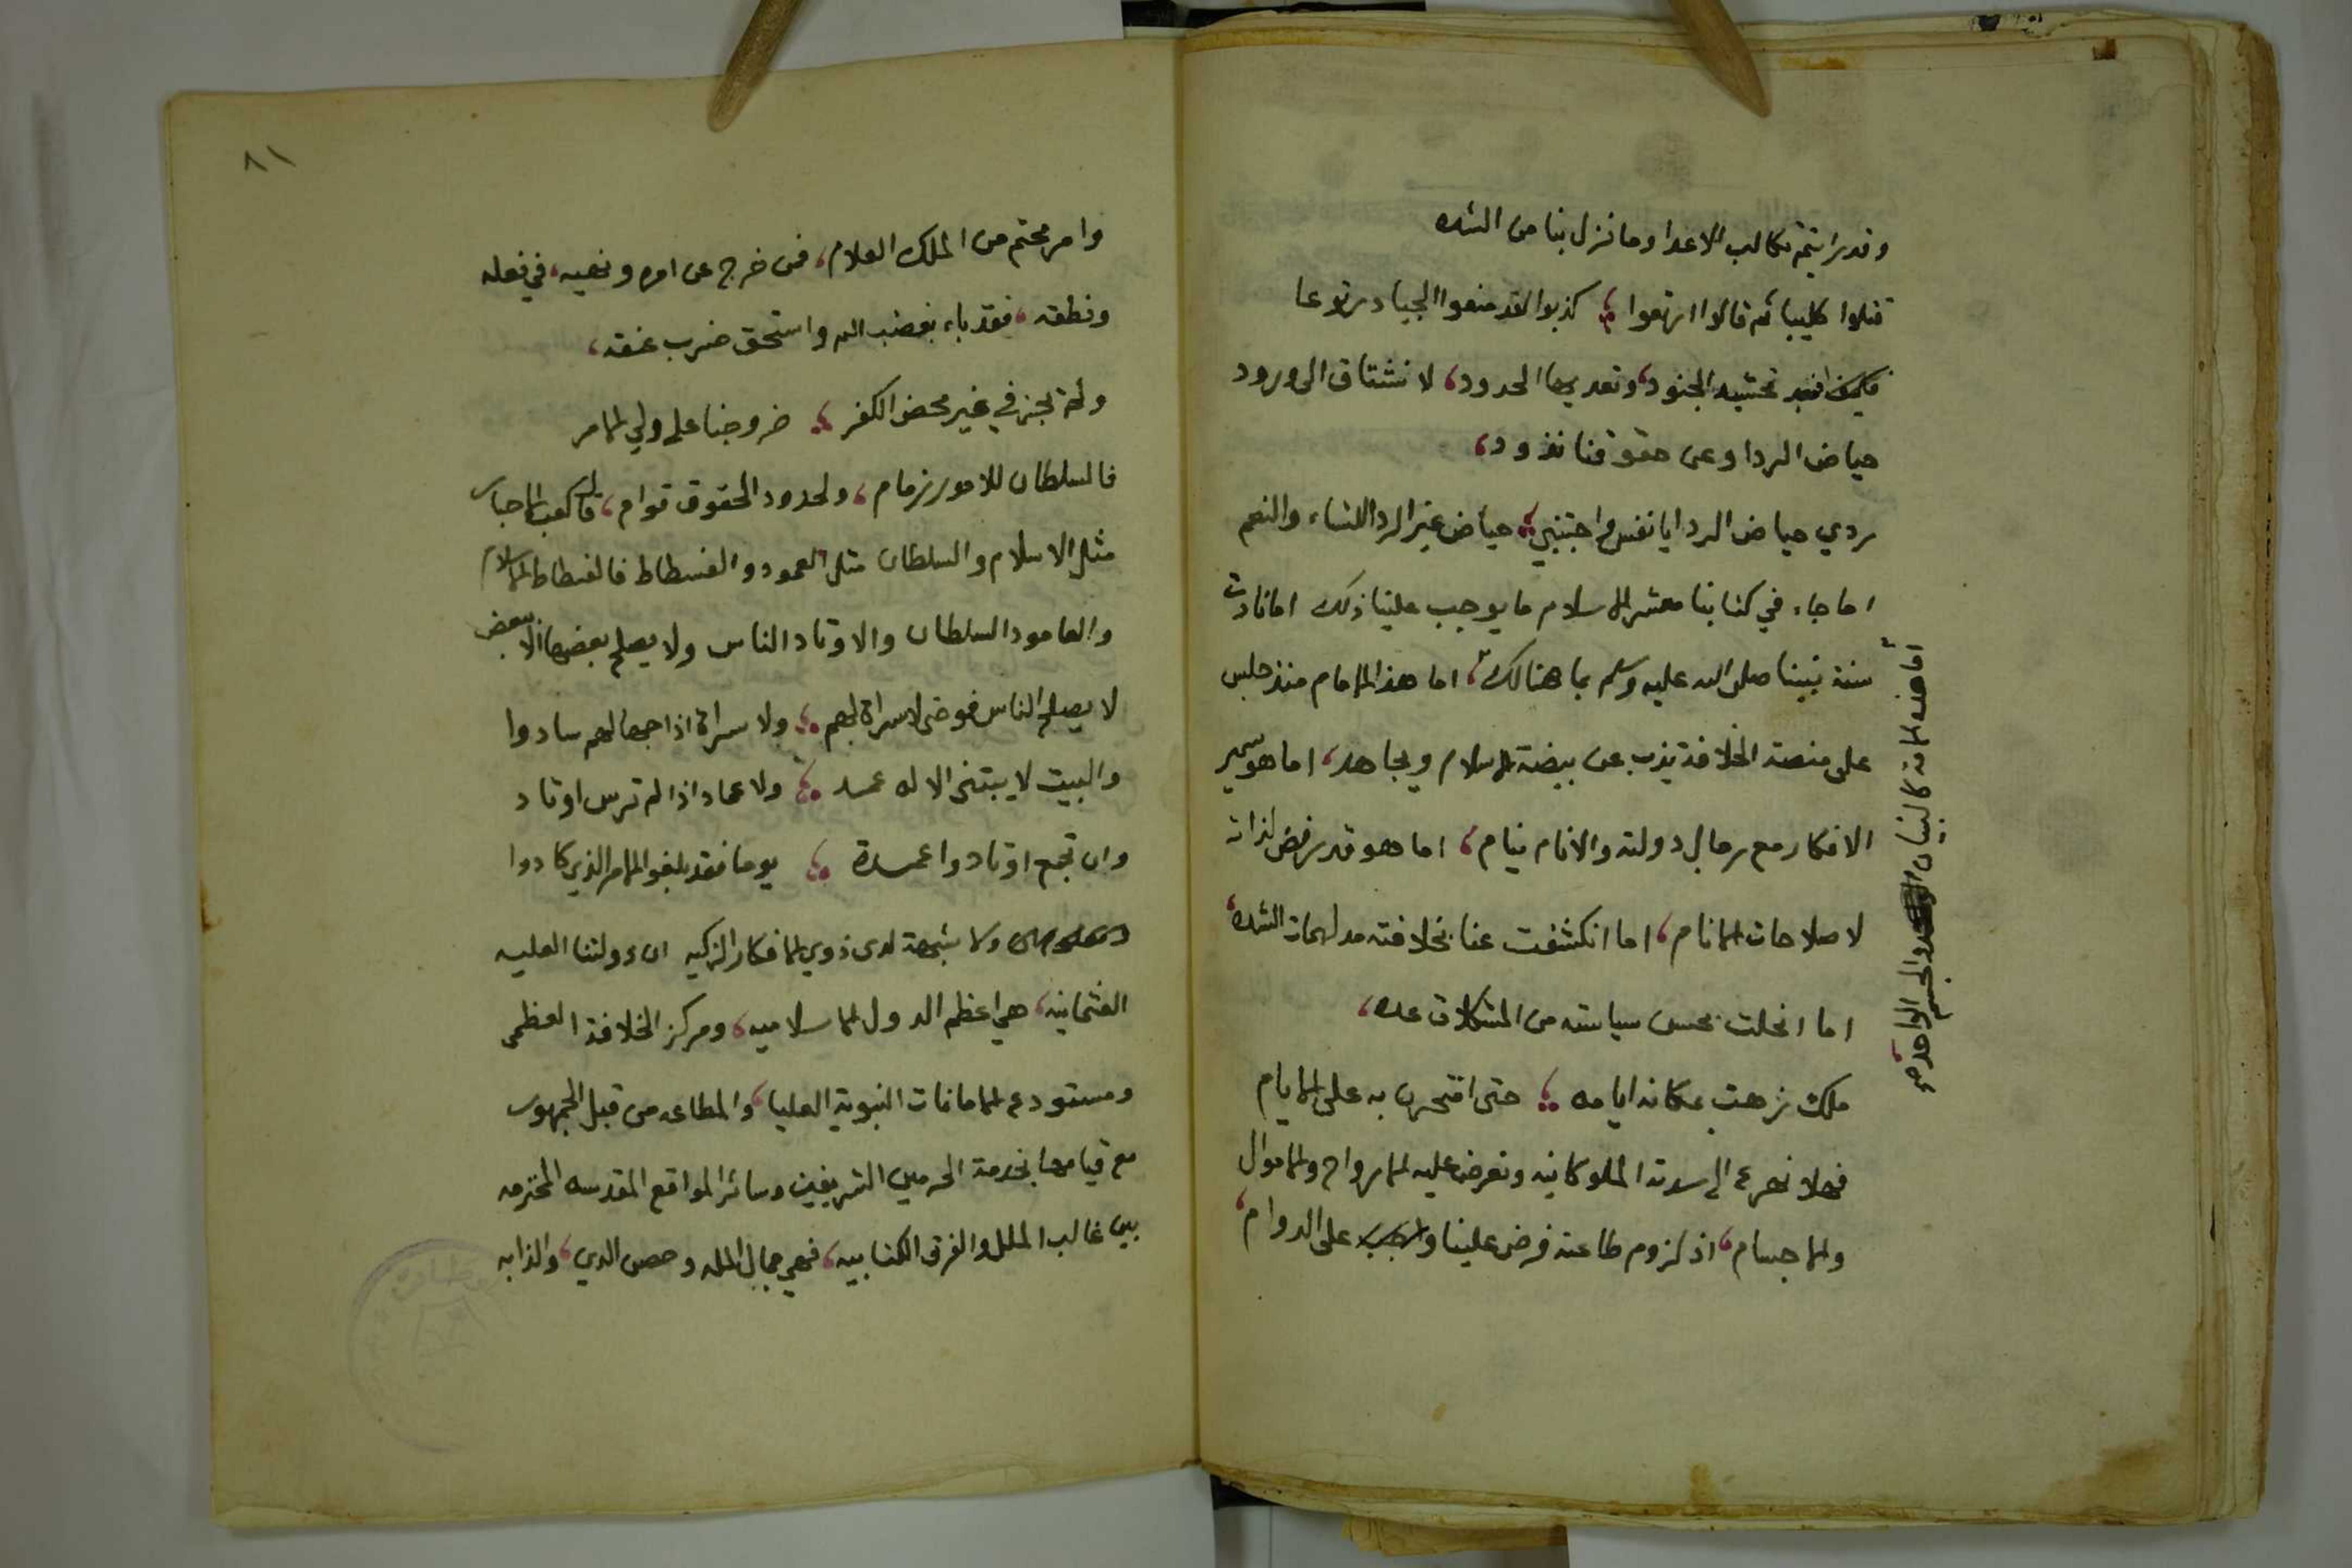 وقد رايتم تكالب الاعدا وما نزل بنا من الشده
قتلوا كليبا ثم قالوا ارتعوا ؛ كذبوا لقد منعوا الجياد رتوعا
فكيف بعد تحشيد الجنود، وتعديها الحدود، لا نشتاق الى ورود
حياض الردا وعن حقوقنا نذود،
ردي حياض الردا يا نفس واجتنبي ؛ حياض غير الردا للشاء والنعم
اما جاء في كتابنا معشر الاسلام ما يوجب علينا ذلك اما نادت
سنة نبينا صلى الله عليه وسلم بما هنالك، اما هذا الامام منذ جلس
على منصة الخلافة يذب عن بيضة الاسلام ويجاهد، اما هو سمير
الافكار مع رجال دولته والانام نيام، اما هو قد رفض لذاته
لاصلاحات الانام، اما انكشفت عنا بخلافته مدلهمات الشده،
اما انحلت بحسن سياسته من المشكلات عده،
ملك زهت بمكانه ايامه ؛ حتى افتخرن به على الايام
فهلا نهرع الى سدته الملوكانيه ونعرض عليه الارواح والاموال
والاجسام، اذ لزوم طاعته فرض علينا واجب على الدوام،
اما هذه الامة كالبنيان والجسم الواحد
٨١
وامر محتم من الملك العلام، فمن خرج عن امره ونهيه، في فعله
ونطقه، فقد باء بغضب الله واستحق ضرب عنقه،
ولم يجز في غير محض الكفر ؛ خروجنا على ولي الامر
فالسلطان للامور زمام، ولحدود الحقوق قوام، قال كعب الاحبار
مثل الاسلام والسلطان مثل العمود والفسطاط فالفسطاط الاسلام
والعامود السلطان والاوتاد الناس ولا يصلح بعضها الا ببعض
لا يصلح الناس فوضى لا سراة لهم ؛ ولا سراة اذا جهالهم سادوا
والبيت لا يبتنى الا له عمد ؛ ولا عماد اذا لم ترس اوتاد
وان تجمع اوتاد واعمدة ؛ يوما فقد بلغوا الامر الذي كادوا
ولا شبهة لدى ذوي الافكار الزكيه ان دولتنا العليه
العثمانيه، هي اعظم الدول الاسلاميه، ومركز الخلافة العظمى
ومستودع الامانات النبوية العليا، والمطاعه من قبل الجمهور
مع قيامها بخدمة الحرمين الشريفين وسائر المواقع المقدسه المحترمه
بين غالب الملل والفرق الكتابيه، فهي جمال المله وحصن الدين، والذابه